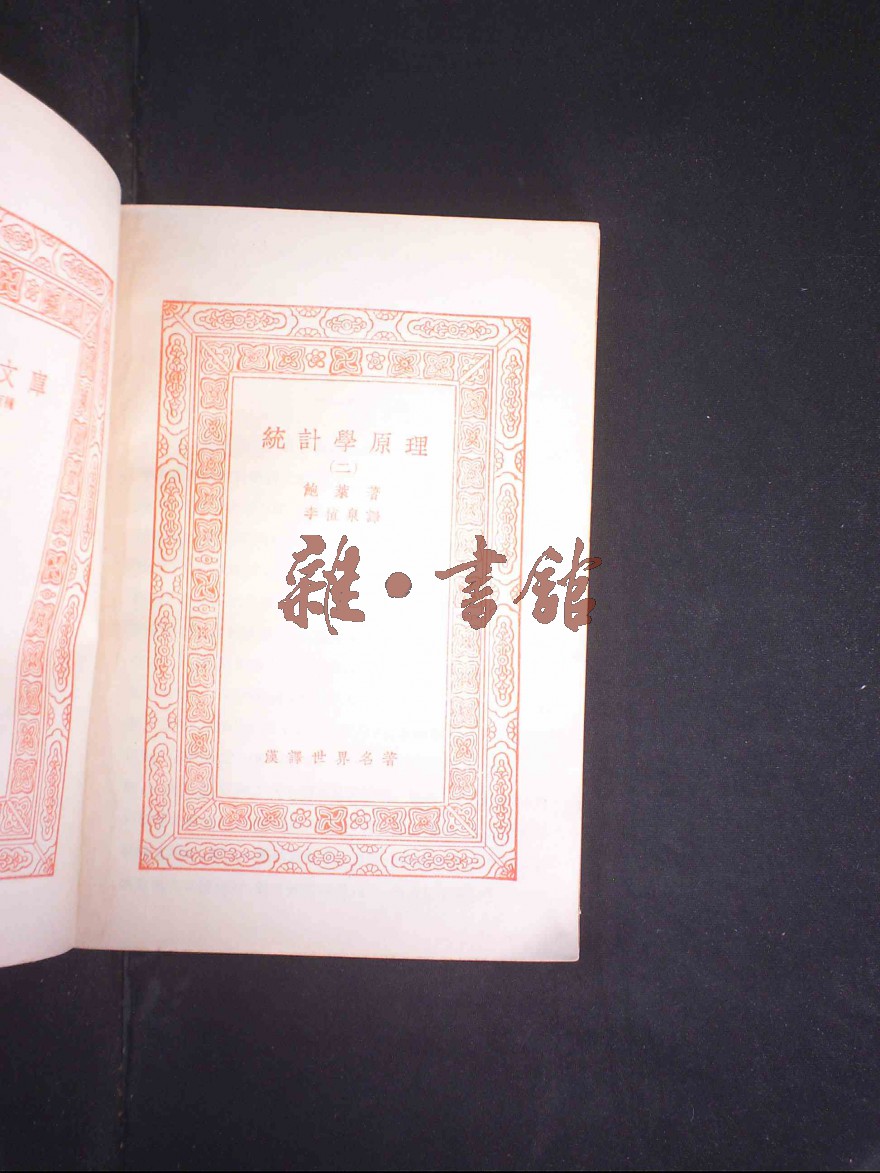 統計學原理
(二)
鮑萊著
李植泉譯
漢譯世界名著
雜·書館
文